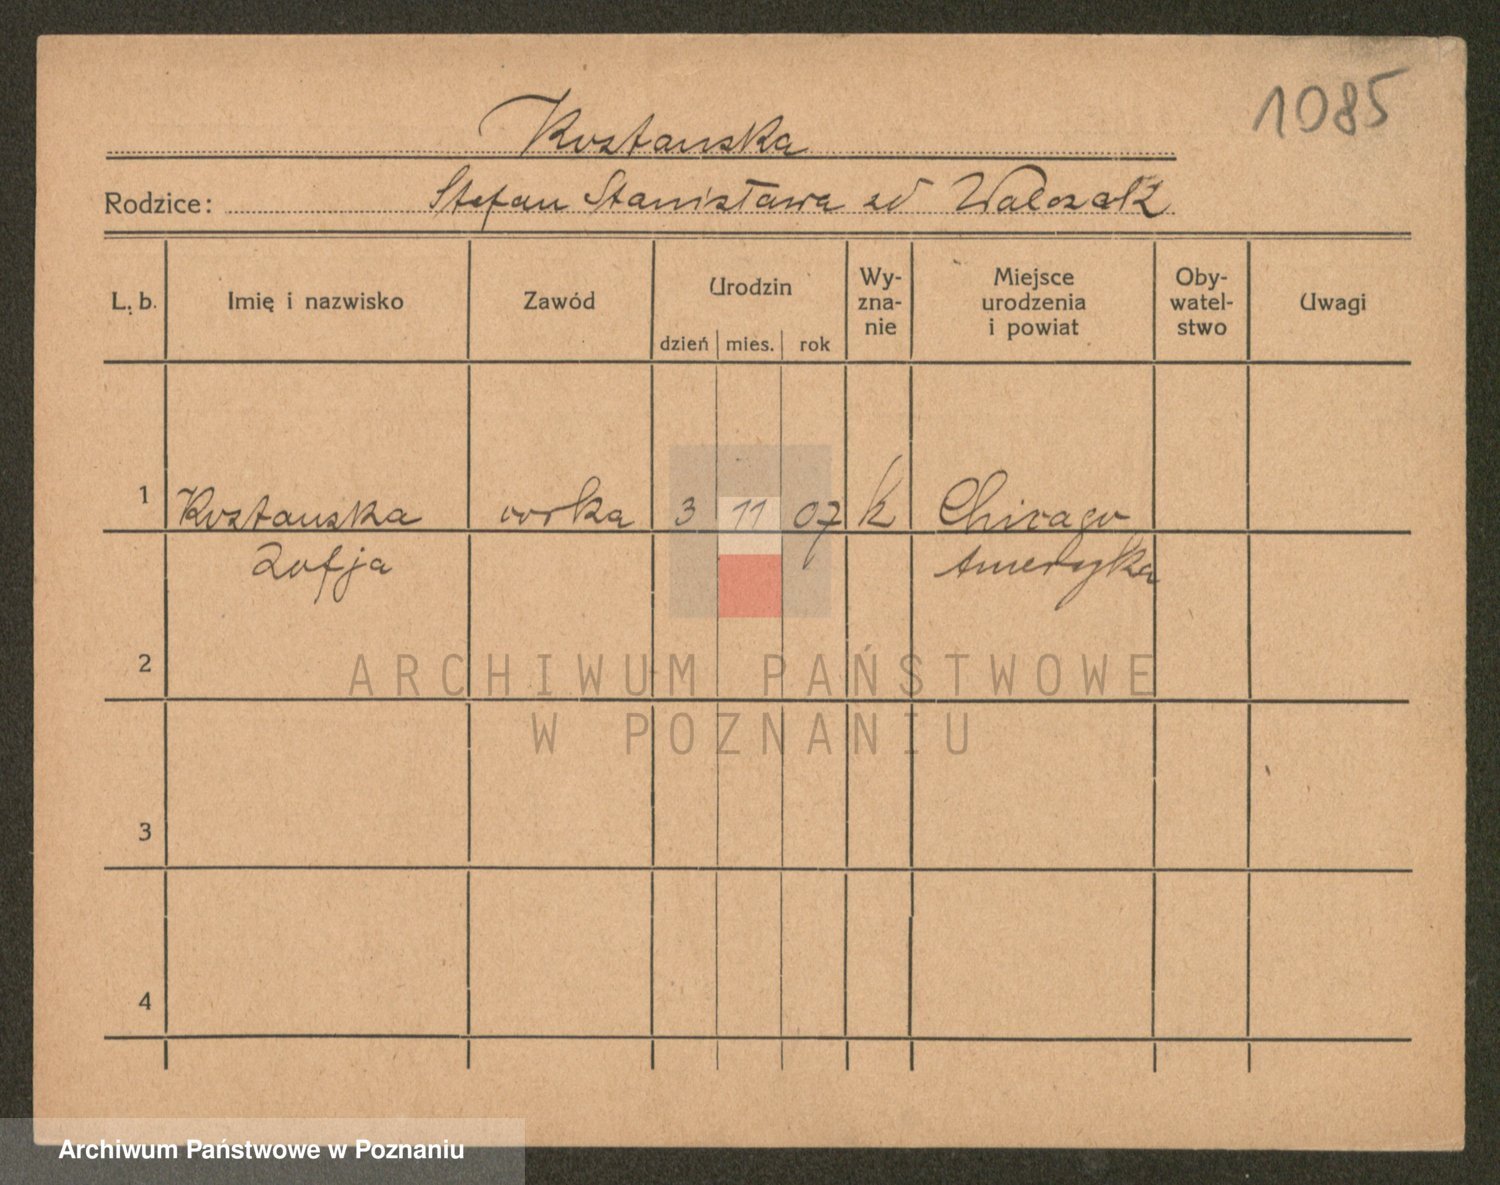 1085
Kostanska
Rodzice: Stefan Stanisława zd Walczak
L. b. Imię i nazwisko Zawód Urodzin dzień mies. rok Wy-zna-nie Miejsce urodzenia i powiat Oby-watel-stwo Uwagi
1 Kostanska córka 3 11 07 k Chicago
Zofja Ameryka
2
ARCHIWUM PAŃSTWOWE
W POZNANIU
3
4
Archiwum Państwowe w Poznaniu